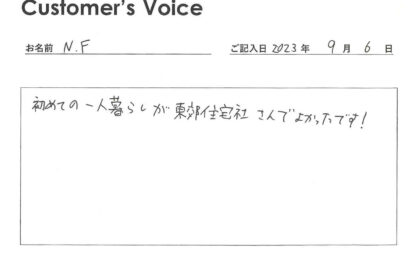 Customer's Voice
お名前 N.F ご記入日 2023 年 9 月 6 日
初めての一人暮らしが東郊住宅社さんでよかったです!